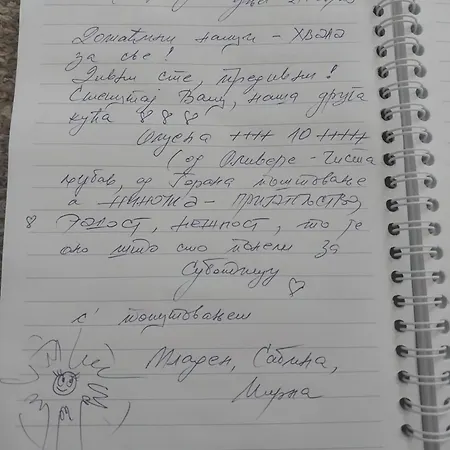 Домаћини наши – ХВАЛА
за све!
Дивни сте, предивни!
Смештај Ваш, наша друга
кућа
Оцена ++++ 10 +++++
(од Оливере – чиста
љубав, од Горана поштовање
а НИНОЧКА – ПРИЈАТЕЉСТВО,
РАДОСТ, НЕЖНОСТ, то је
оно што смо понели за
Суботицу
с' поштовањем
Младен, Сабина,
Мирна